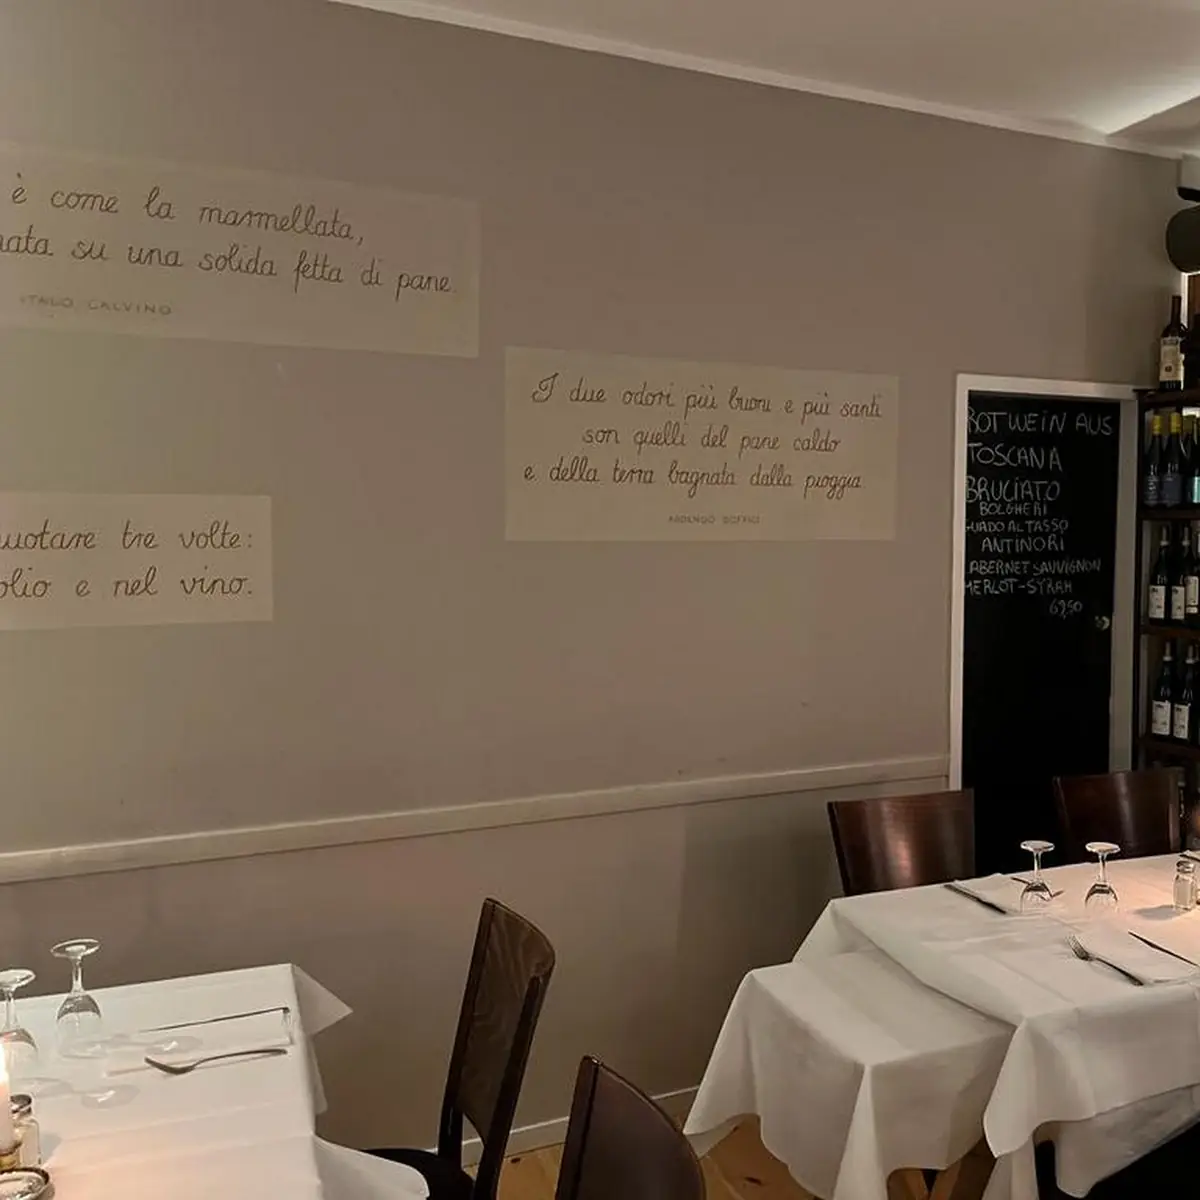 è come la marmellata,
su una solida fetta di pane.
ITALO CALVINO
I due odori più buoni e più santi
son quelli del pane caldo
e della terra bagnata dalla pioggia
ARDENGO SOFFICI
tre volte:
olio e nel vino.
ROTWEIN AUS
TOSCANA
BRUCIATO
BOLGHERI
GUADO AL TASSO
ANTINORI
CABERNET SAUVIGNON
MERLOT-SYRAH
69,50